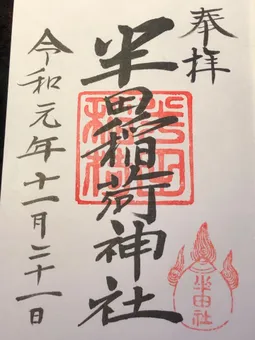 奉拝
半田稲荷神社
半田社
令和元年十一月二十一日